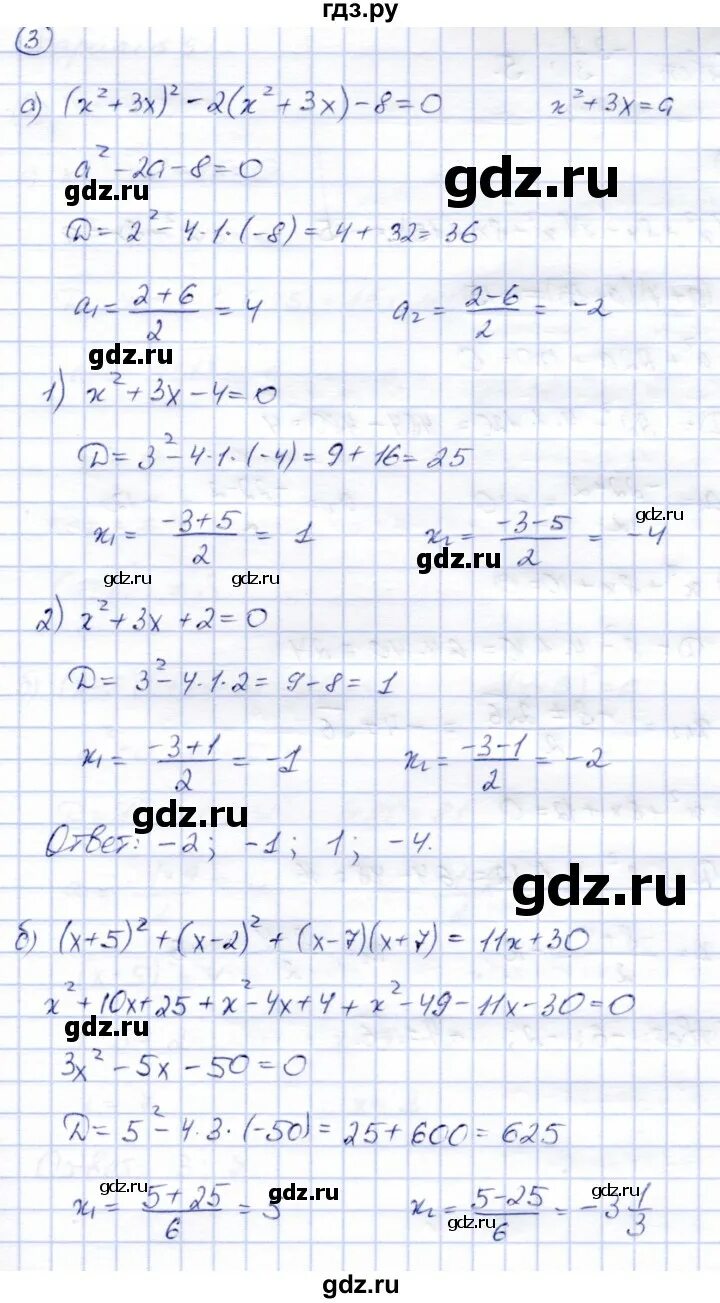 гдз.ру
3
а) (x²+3x)²-2(x²+3x)-8=0 x²+3x=a
a²-2a-8=0
gdz.ru gdz.ru
D=2²-4·1·(-8)=4+32=36
a₁=(2+6)/2=4 a₂=(2-6)/2=-2
gdz.ru
1) x²+3x-4=0
D=3²-4·1·(-4)=9+16=25
gdz.ru
x₁=(-3+5)/2=1 x₂=(-3-5)/2=-4
gdz.ru
gdz.ru gdz.ru
2) x²+3x+2=0
D=3²-4·1·2=9-8=1
x₁=(-3+1)/2=-1 x₂=(-3-1)/2=-2
gdz.ru
Ответ: -2; -1; 1; -4.
gdz.ru
б) (x+5)²+(x-2)²+(x-7)(x+7)=11x+30
x²+10x+25+x²-4x+4+x²-49-11x-30=0
gdz.ru
3x²-5x-50=0
D=5²-4·3·(-50)=25+600=625
gdz.ru gdz.ru gdz.ru
x₁=(5+25)/6=5 x₂=(5-25)/6=-3 1/3
gdz.ru
gdz.ru